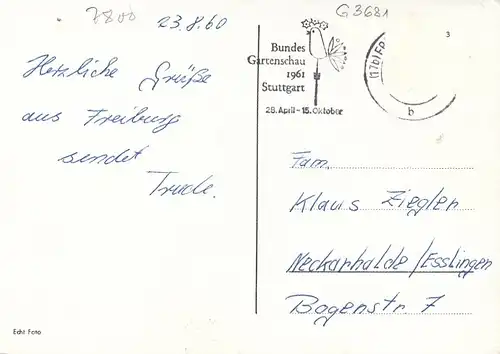 7800
23.8.60
G3681
Herzliche Grüße
aus Freiburg
sendet
Trude.
Bundes
Gartenschau
1961
Stuttgart
28. April - 15. Oktober
(17b) FR
b
3
Fam.
Klaus Ziegler
Neckarhalde / Esslingen
Bogenstr. 7
Echt Foto